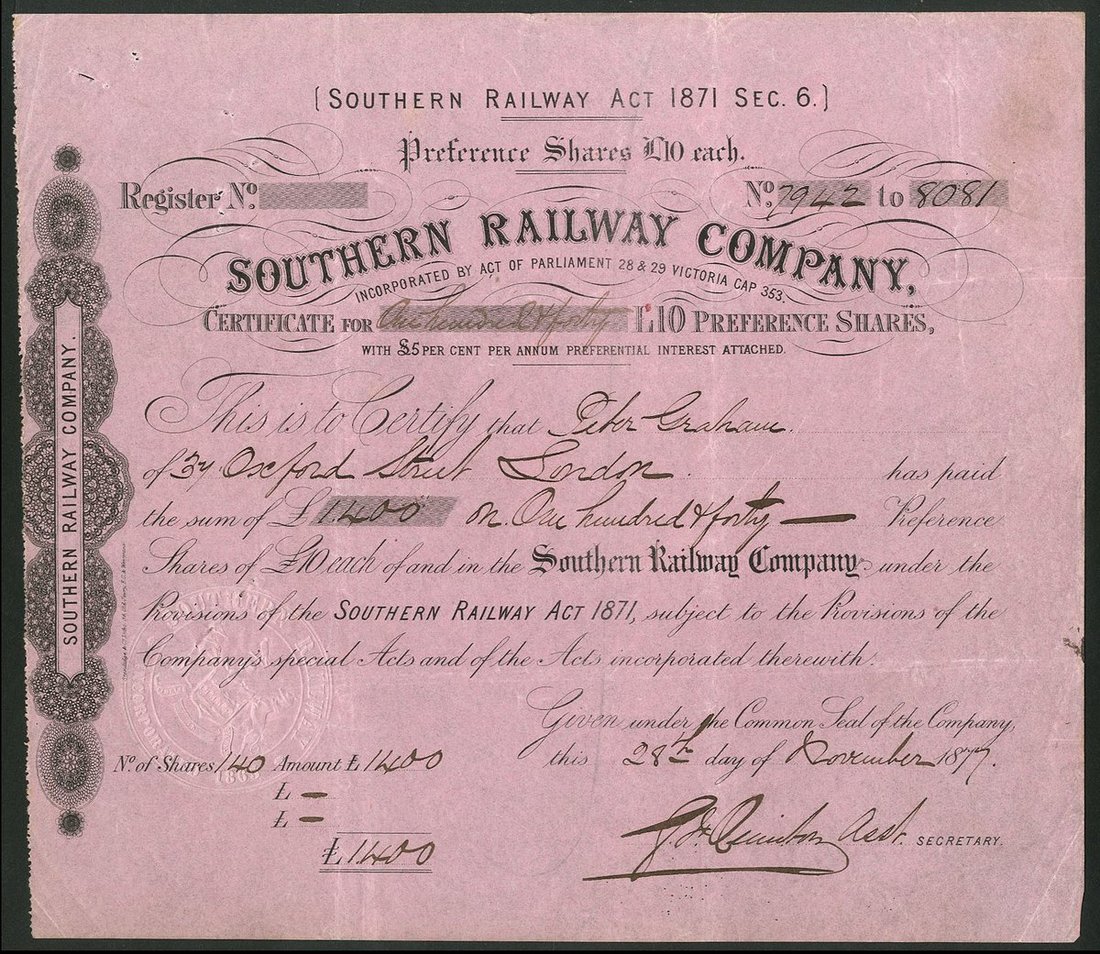 (SOUTHERN RAILWAY ACT 1871 SEC. 6.)
Preference Shares £10 each.
Register No. No. 7942 to 8081
SOUTHERN RAILWAY COMPANY,
INCORPORATED BY ACT OF PARLIAMENT 28 & 29 VICTORIA CAP 353.
CERTIFICATE FOR One hundred & forty £10 PREFERENCE SHARES,
WITH £5 PER CENT PER ANNUM PREFERENTIAL INTEREST ATTACHED.
This is to Certify that Peter Graham.
of Oxford Street London. has paid
the sum of £1400 on One hundred & forty — Preference
Shares of £10 each of and in the Southern Railway Company under the
Provisions of the SOUTHERN RAILWAY ACT 1871, subject to the Provisions of the
Company's special Acts and of the Acts incorporated therewith.
Given under the Common Seal of the Company,
this 28th day of November 1877.
No. of Shares 140 Amount £1400
£ —
£ —
£1400
Asst. SECRETARY.
SOUTHERN RAILWAY COMPANY.